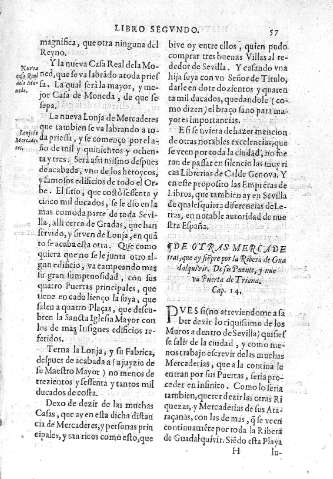 LIBRO SEGVNDO.
57
magnifica, que otra ninguna del
Reyno.
Nueva
casa Real
de la Mo-
neda.
Y la nueva Casa Real dela Mo
ned, que se va labrãdo a toda prie
sa. La qual será la mayor, y me-
jor Casa de Moneda, de que se
sepa.
Lonja de
Mercade-
res.
Y la nueva Lonja de Mercaderes
que tambien se va labrando a to-
da priessa, y se començo por el a-
ño de mil y quinientos y ochen-
ta y tres. Será assi mismo despues
de acabada, vno de los heroycos,
y famosos edificios de todo el Or-
be. El sitio, que costò sessenta y
cinco mil ducados, se le dio en la
mas comoda parte de toda Sevi-
lla, alli cerca de Gradas, que han
servido, y sirven de Lonja, en quã
to se acaba esta otra. Que como
quiera que no se le junta otro al-
gun edificio, va campeando mas
su gran sumptuosidad, con sus
quatro Puertas principales, que
tiene en cada lienço la suya, que
salen a quatro Plaças, que descu-
bren la Sancta Iglesia Mayor con
los de mas Insignes edificios re-
feridos.
Terna la Lonja, y su Fabrica,
despues de acabada (a juyzio de
su Maestro Mayor) no menos de
trezientos y sessenta y tantos mil
ducados de costa.
Dexo de dezir de las muchas
Casas, que ay en esta dicha distan
cia de Mercaderes, y personas prin
cipales, y tan ricos como esto, que
bive oy entre ellos, quien pudo
comprar tres buenas Villas al re-
dedor de Sevilla. Y casando vna
hija suya con vn Señor de Titulo,
darle en dote dozientos y quaren
ta mil ducados, quedandole (co-
mo dizen) el braço sano para ma-
yores importancias.
Y si se tuviera de hazer mencion
de otras notables excelencias, que
se veen por toda la ciudad, no fue
ran de passar en silencio las muy ri
cas Librerias de Cal de Genova. Y
a este proposito las Emprentas de
Libros, que tambien ay en Sevilla
de qualesquiera differencias de Le-
tras, en notable autoridad de nue
stra España.
DE OTRAS MERCADE
rias, que ay siẽpre por la Ribera de Gua
dalquivir. De su Puente, y nue
va Puerta de Triana.
Cap. 14.
PVES si (no atreviendome a sa
ber dezir lo riquissimo de los
Muros a dentro de Sevilla) quisies
se salir de la ciudad, y como me-
nos trabajo escrevir de las muchas
Mercaderias, que a la contina le
entran por sus Puertas, seria pro-
ceder en infinito. Como lo seria
tambien, querer dezir las otras Ri
quezas, y Mercaderias de sus Ata-
raçanas, con las de mas, q̃ se veen
continuamẽte por toda la Ribera
de Guadalquivir. Siẽdo esta Playa
H
lu-